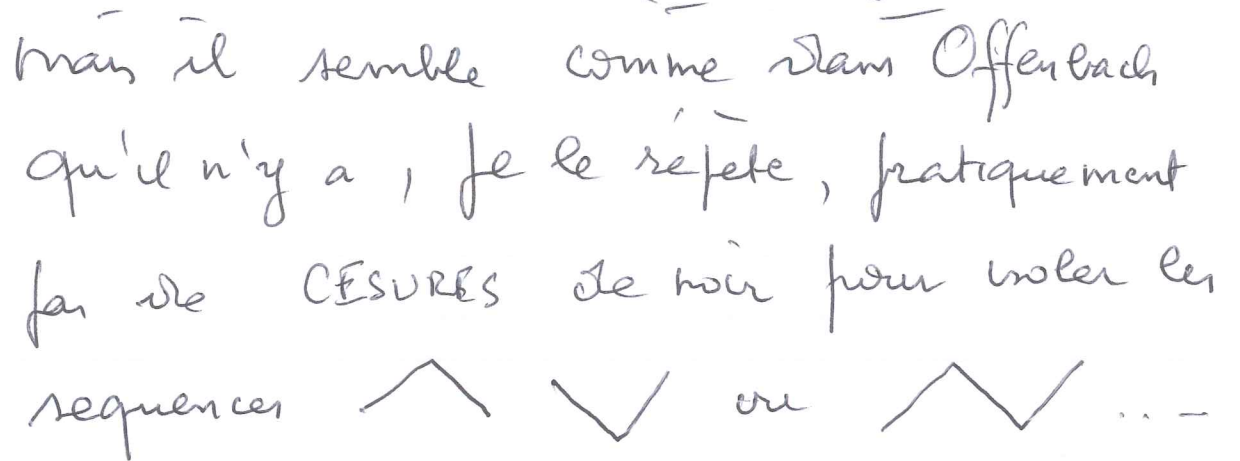 mais il semble comme dans Offenbach
qu'il n'y a, je le répète, pratiquement
pas de CESURES de noir pour isoler les
sequences ou ...